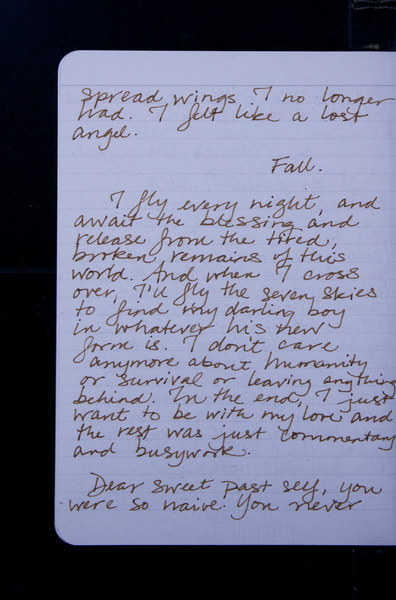 spread wings I no longer
had. I felt like a lost
angel.
Fall.
I fly every night, and
await the blessing and
release from the tired,
broken remains of this
world. And when I cross
over, I'll fly the seven skies
to find my darling boy
in whatever his new
form is. I don't care
anymore about humanity
or survival or leaving anything
behind. In the end, I just
want to be with my love and
the rest was just commentary
and busywork.
Dear sweet past self, you
were so naive. You never